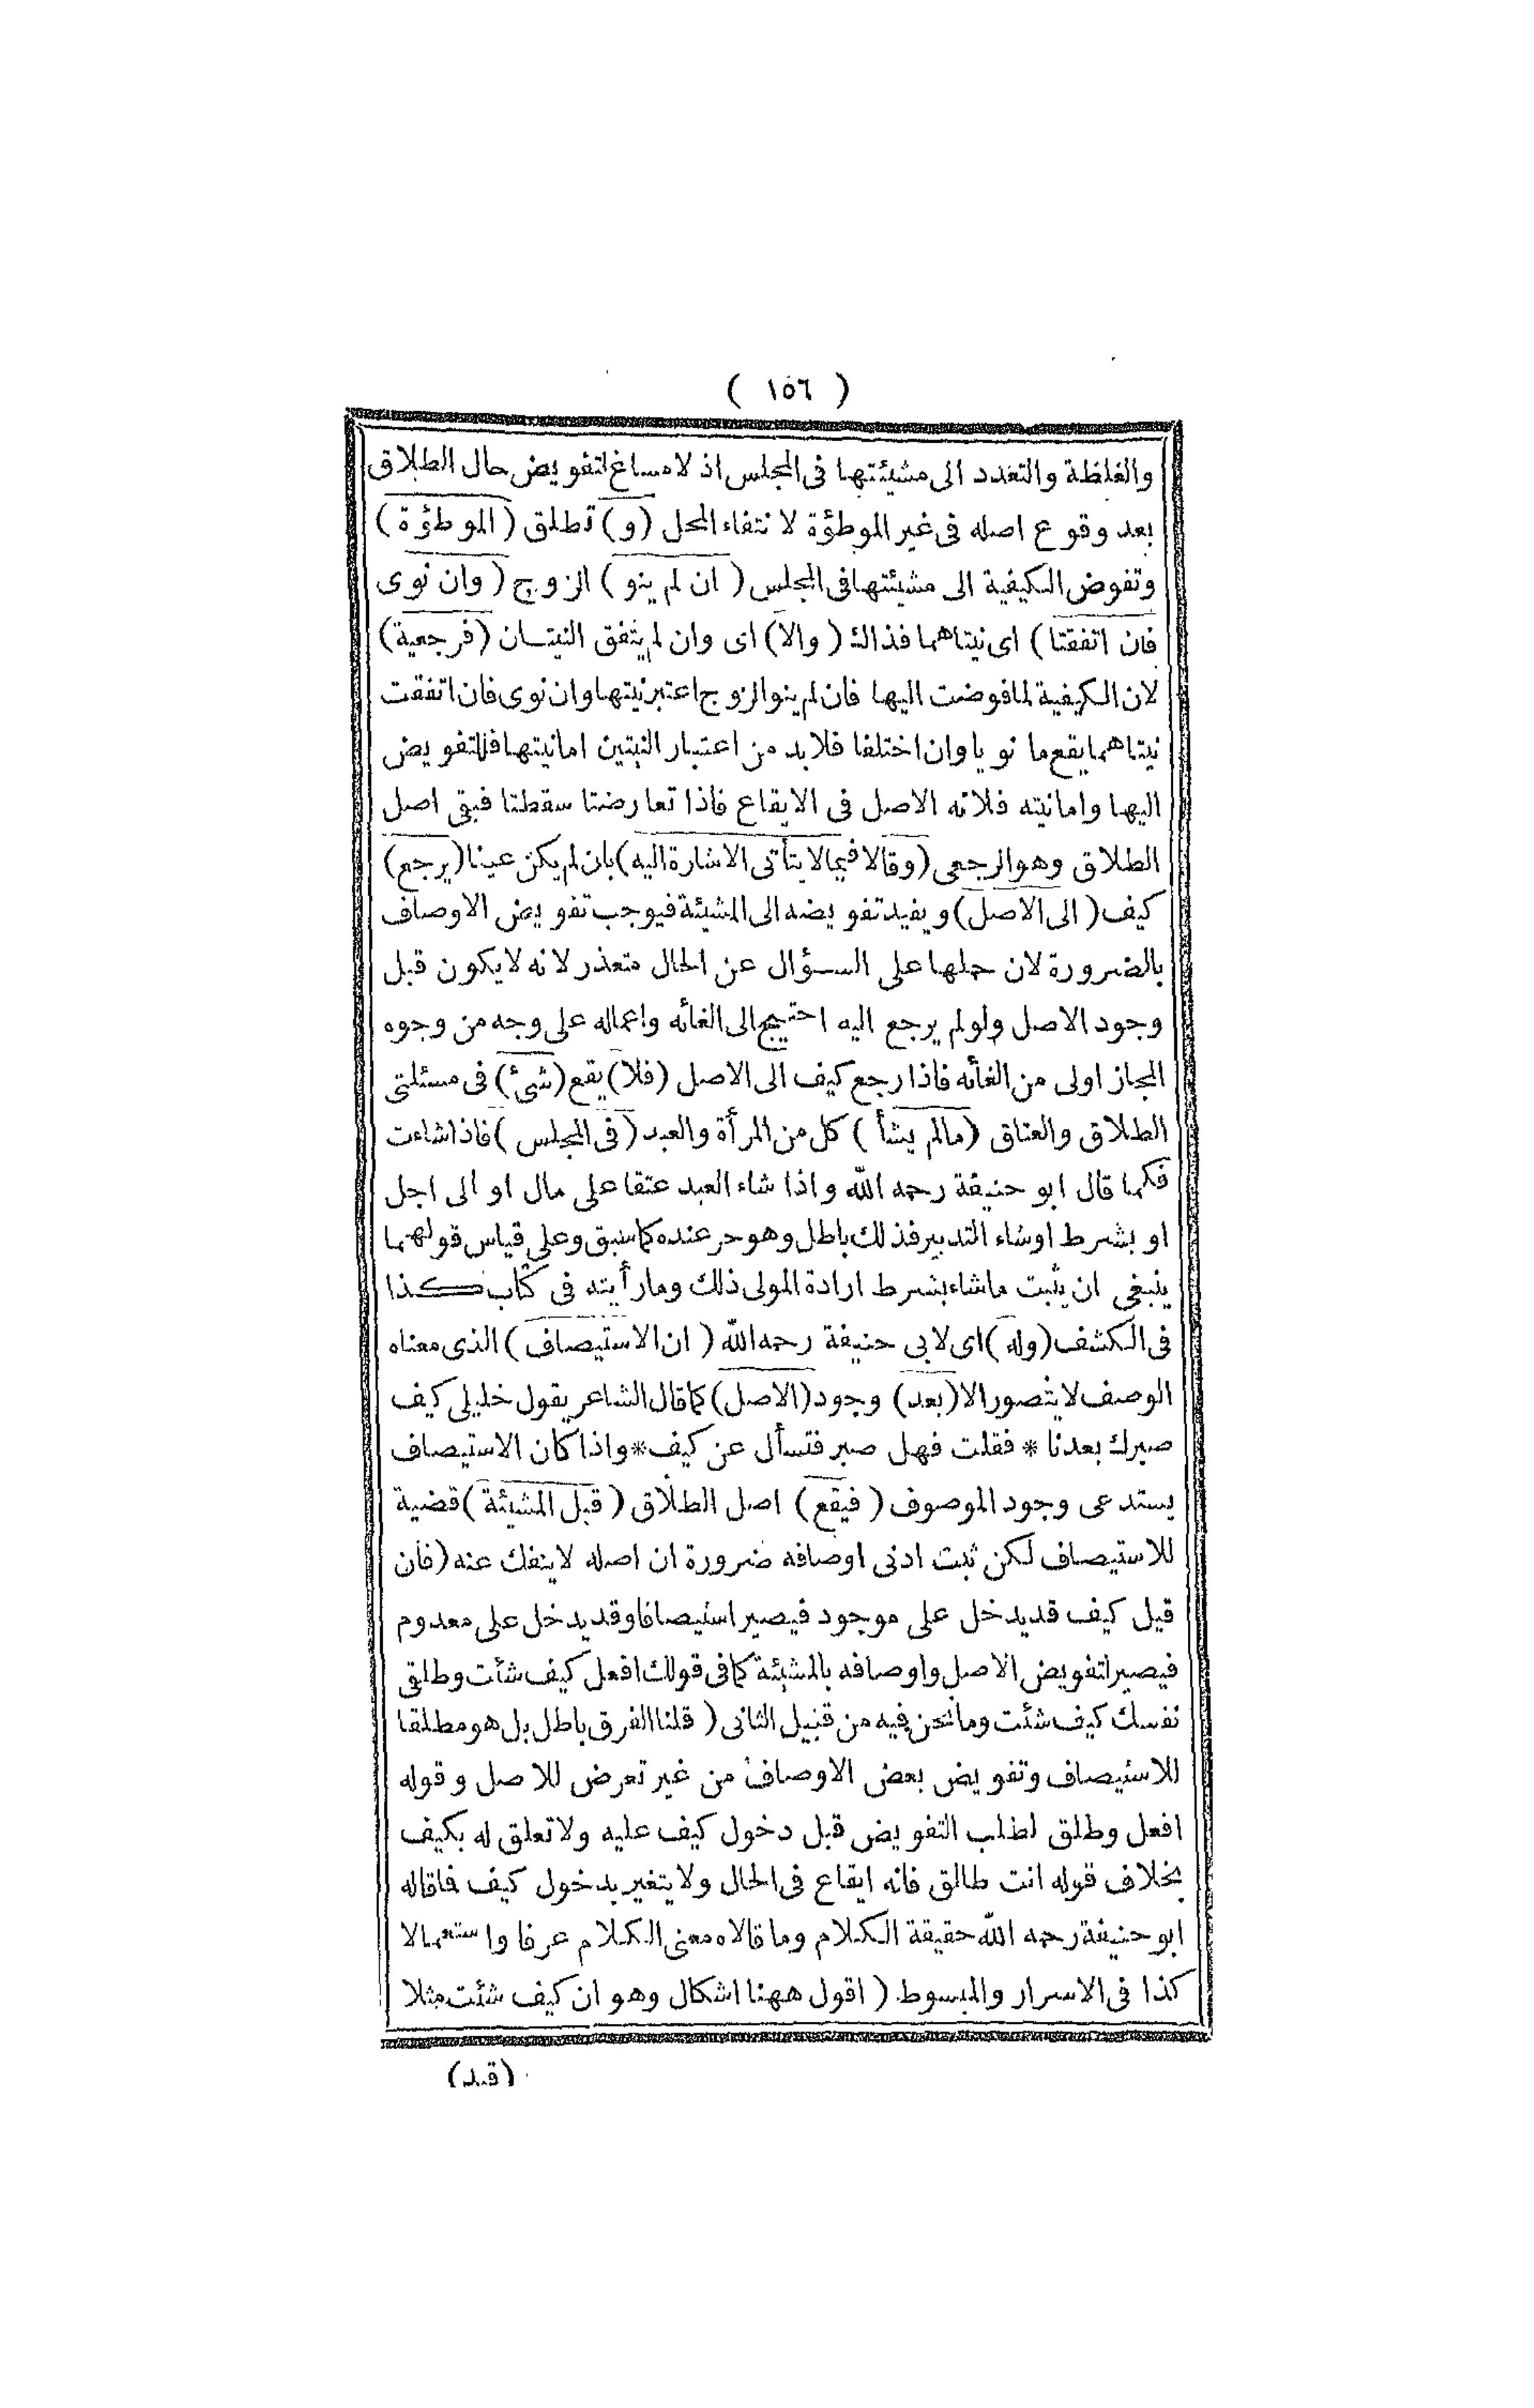 ( ١٥٦ )
والغلظة والتعدد الى مشيئتها فى المجلس اذ لا مساغ لتفويض حال الطلاق
بعد وقوع اصله فى غير الموطؤة لانتفاء المحل (و) تطلق (الموطؤة)
وتفوض الكيفية الى مشيئتها فى المجلس (ان لم ينو) الزوج (وان نوى
فان اتفقتا) اى نيتاهما فذاك (والا) اى وان لم يتفق النيتان (فرجعية)
لان الكيفية لما فوضت اليها فان لم ينو الزوج اعتبر نيتها وان نوى فان اتفقت
نيتاهما يقع ما نويا وان اختلفا فلا بد من اعتبار النيتين اما نيتها فللتفويض
اليها واما نيته فلانه الاصل فى الايقاع فاذا تعارضتا سقطتا فبقى اصل
الطلاق وهو الرجعى (وقالا فيما لا يتأتى الاشارة اليه) بان لم يكن عينا (يرجع)
كيف (الى الاصل) ويفيد تفويضه الى المشيئة فيوجب تفويض الاوصاف
بالضرورة لان حملها على السؤال عن الحال متعذر لانه لا يكون قبل
وجود الاصل ولو لم يرجع اليه احتيج الى الغائه واعماله على وجه من وجوه
المجاز اولى من الغائه فاذا رجع كيف الى الاصل (فلا) يقع (شئ) فى مسئلتى
الطلاق والعتاق (مالم يشأ) كل من المرأة والعبد (فى المجلس) فاذا شاءت
فكما قال ابو حنيفة رحمه الله واذا شاء العبد عتقا على مال او الى اجل
او بشرط او شاء التدبير فذلك باطل وهو حر عنده كما سبق وعلى قياس قولهما
ينبغى ان يثبت ما شاء بشرط ارادة المولى ذلك وما رأيته فى كتاب كذا
فى الكشف (وله) اى لابى حنيفة رحمه الله (ان الاستيصاف) الذى معناه
الوصف لا يتصور الا (بعد) وجود (الاصل) كما قال الشاعر يقول خليلى كيف
صبرك بعدنا * فقلت فهل صبر فتسأل عن كيف * واذا كان الاستيصاف
يستدعى وجود الموصوف (فيقع) اصل الطلاق (قبل المشيئة) قضية
للاستيصاف لكن ثبت ادنى اوصافه ضرورة ان اصله لا ينفك عنه (فان
قيل كيف قد يدخل على موجود فيصير استيصافا وقد يدخل على معدوم
فيصير لتفويض الاصل واوصافه بالمشيئة كما فى قولك افعل كيف شأت وطلقى
نفسك كيف شئت وما نحن فيه من قبيل الثانى (قلنا الفرق باطل بل هو مطلقا
للاستيصاف وتفويض بعض الاوصاف من غير تعرض للاصل وقوله
افعل وطلق لطلب التفويض قبل دخول كيف عليه ولا تعلق له بكيف
بخلاف قوله انت طالق فانه ايقاع فى الحال ولا يتغير بدخول كيف فاقاله
ابو حنيفة رحمه الله حقيقة الكلام وما قالاه معنى الكلام عرفا واستعمالا
كذا فى الاسرار والمبسوط (اقول ههنا اشكال وهو ان كيف شئت مثلا
(قيد)